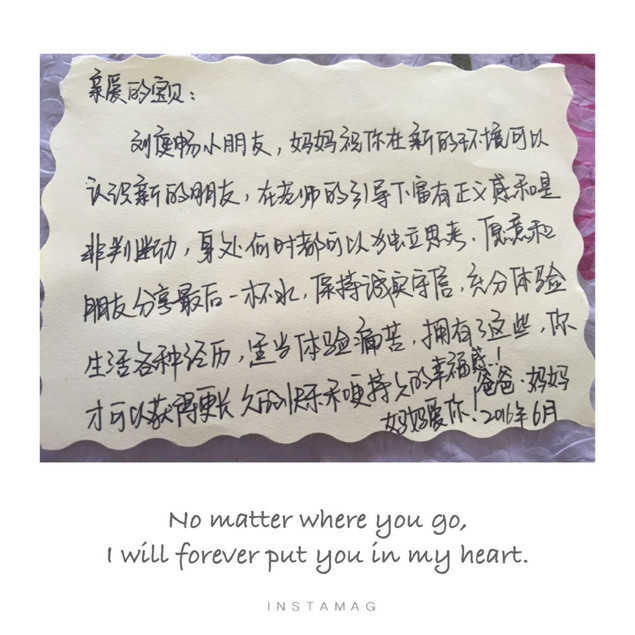 亲爱的宝贝：
刘度畅小朋友，妈妈祝你在新的环境可以
认识新的朋友，在老师的引导下富有正义感和是
非判断力，身处何时都可以独立思考，愿意和
朋友分享最后一杯水，保持诚实守信，充分体验
生活各种经历，适当体验痛苦，拥有了这些，你
才可以获得更长久的快乐和更持久的幸福感！
爸爸·妈妈
妈妈爱你！2016年6月
No matter where you go,
I will forever put you in my heart.
INSTAMAG